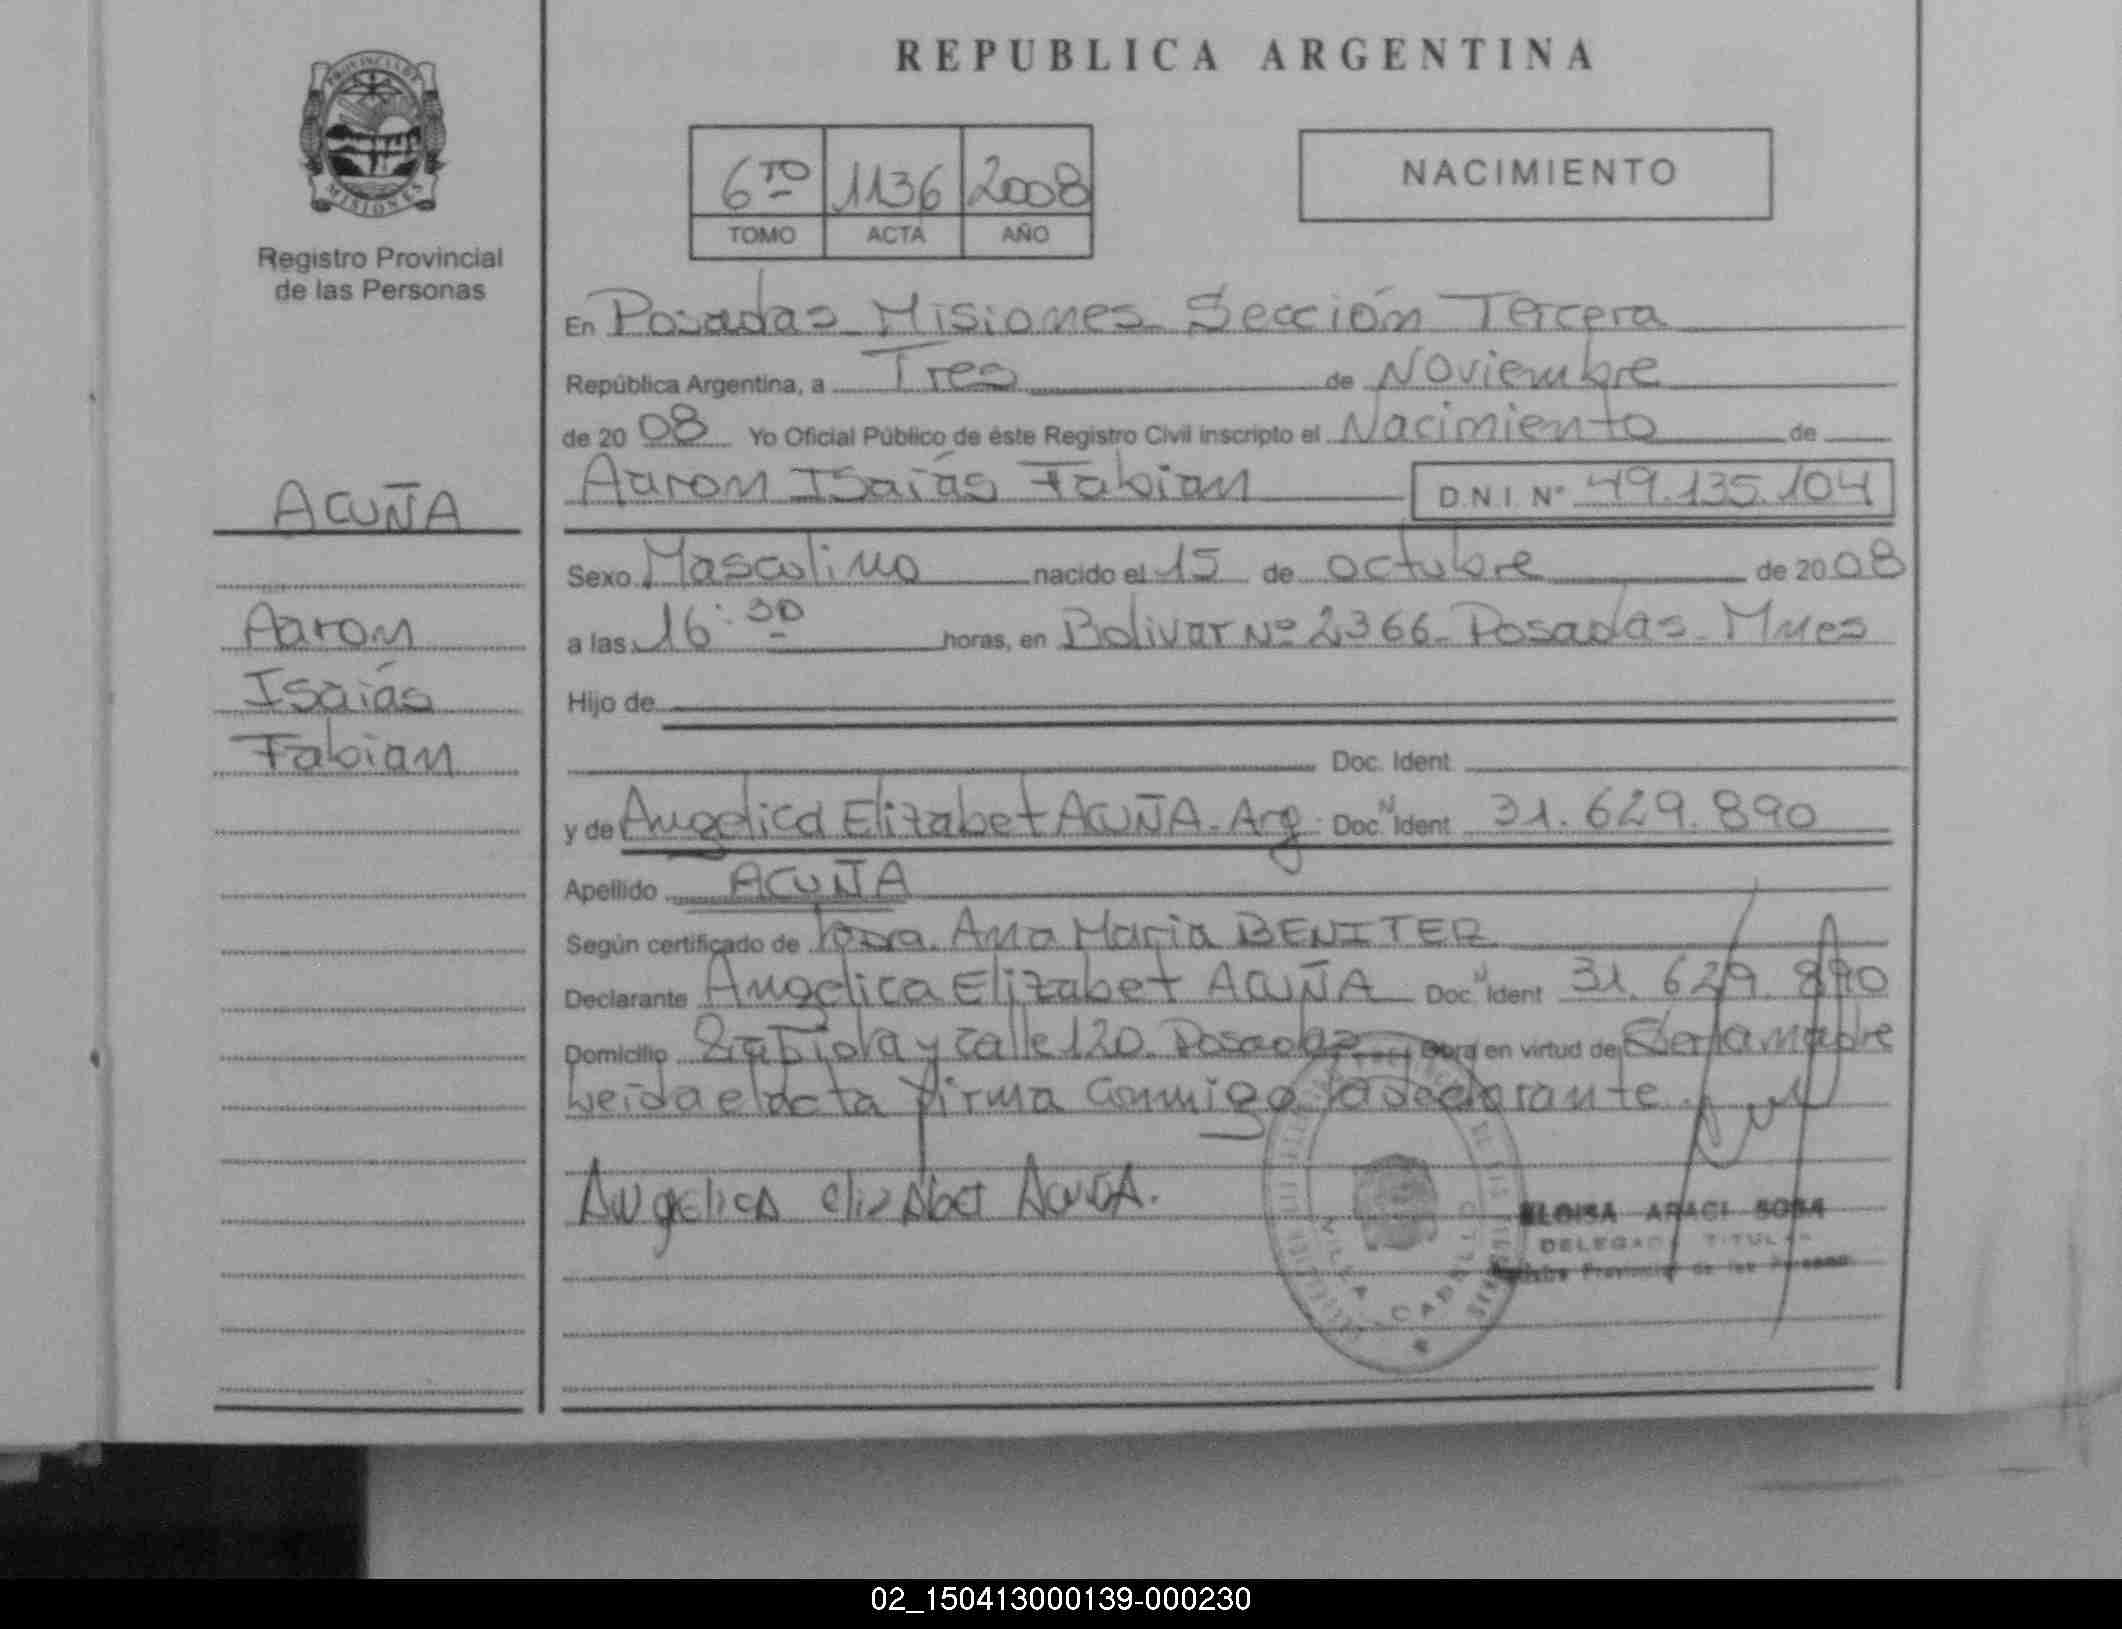 REPUBLICA ARGENTINA
PROVINCIA DE
MISIONES
Registro Provincial
de las Personas
6TO 1136 2008
TOMO ACTA AÑO
NACIMIENTO
En Posadas Misiones Sección Tercera
República Argentina, a Tres de Noviembre
de 2008 Yo Oficial Público de éste Registro Civil inscripto el Nacimiento de
Aaron Isaías Fabian D.N.I. Nº 49.135.104
ACUÑA
Aaron
Isaías
Fabian
Sexo Masculino nacido el 15 de octubre de 2008
a las 16:30 horas, en Bolivar Nº 2366. Posadas. Mnes
Hijo de
Doc. Ident
y de Angelica Elizabet ACUÑA. Arg. Doc. N Ident 31.629.890
Apellido ACUÑA
Según certificado de Ana Maria BENITEZ
Declarante Angelica Elizabet ACUÑA Doc. N Ident 31.629.890
Domicilio y calle 120. Posadas Obra en virtud de Ser la madre
Leida el acta firma Conmigo la declarante.
Angelica elizabet Acuña.
VILLA CABELLO
ELOISA ARACI SOSA
DELEGADA TITULAR
Registro Provincial de las Personas
02_150413000139-000230